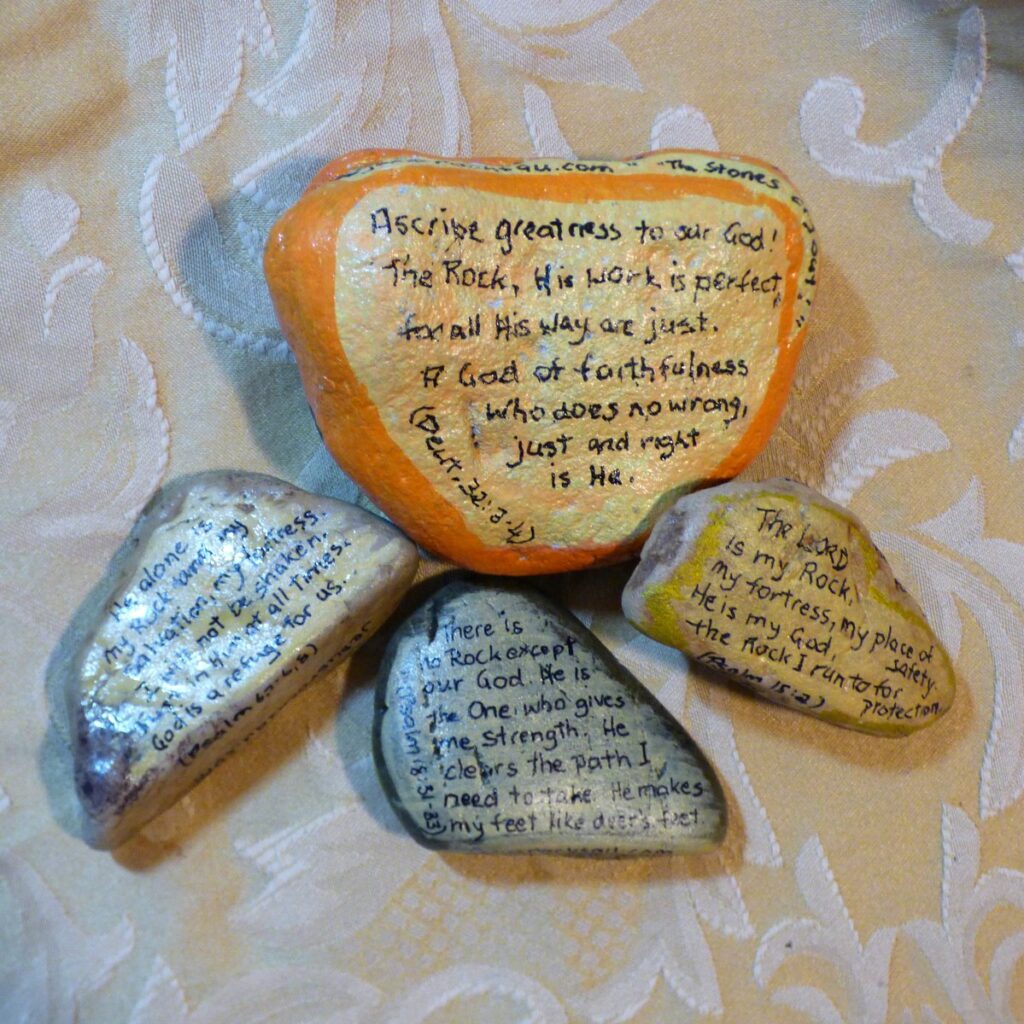 4u.com "The Stones
Ascribe greatness to our God!
The Rock, His work is perfect,
for all His way are just.
A God of faithfulness
who does no wrong,
just and right
is He.
(Deut. 32:3-4)
alone is
my Rock
salvation, my fortress.
not be shaken.
in Him at all times.
God is a refuge for us...
(Psalm
There is
no Rock except
our God. He is
the One who gives
me strength. He
clears the path I
need to take. He makes
my feet like deer's feet.
(Psalm 18:31-33)
The LORD
is my Rock,
my fortress, my place of
safety.
He is my God,
the Rock I run to for
protection.